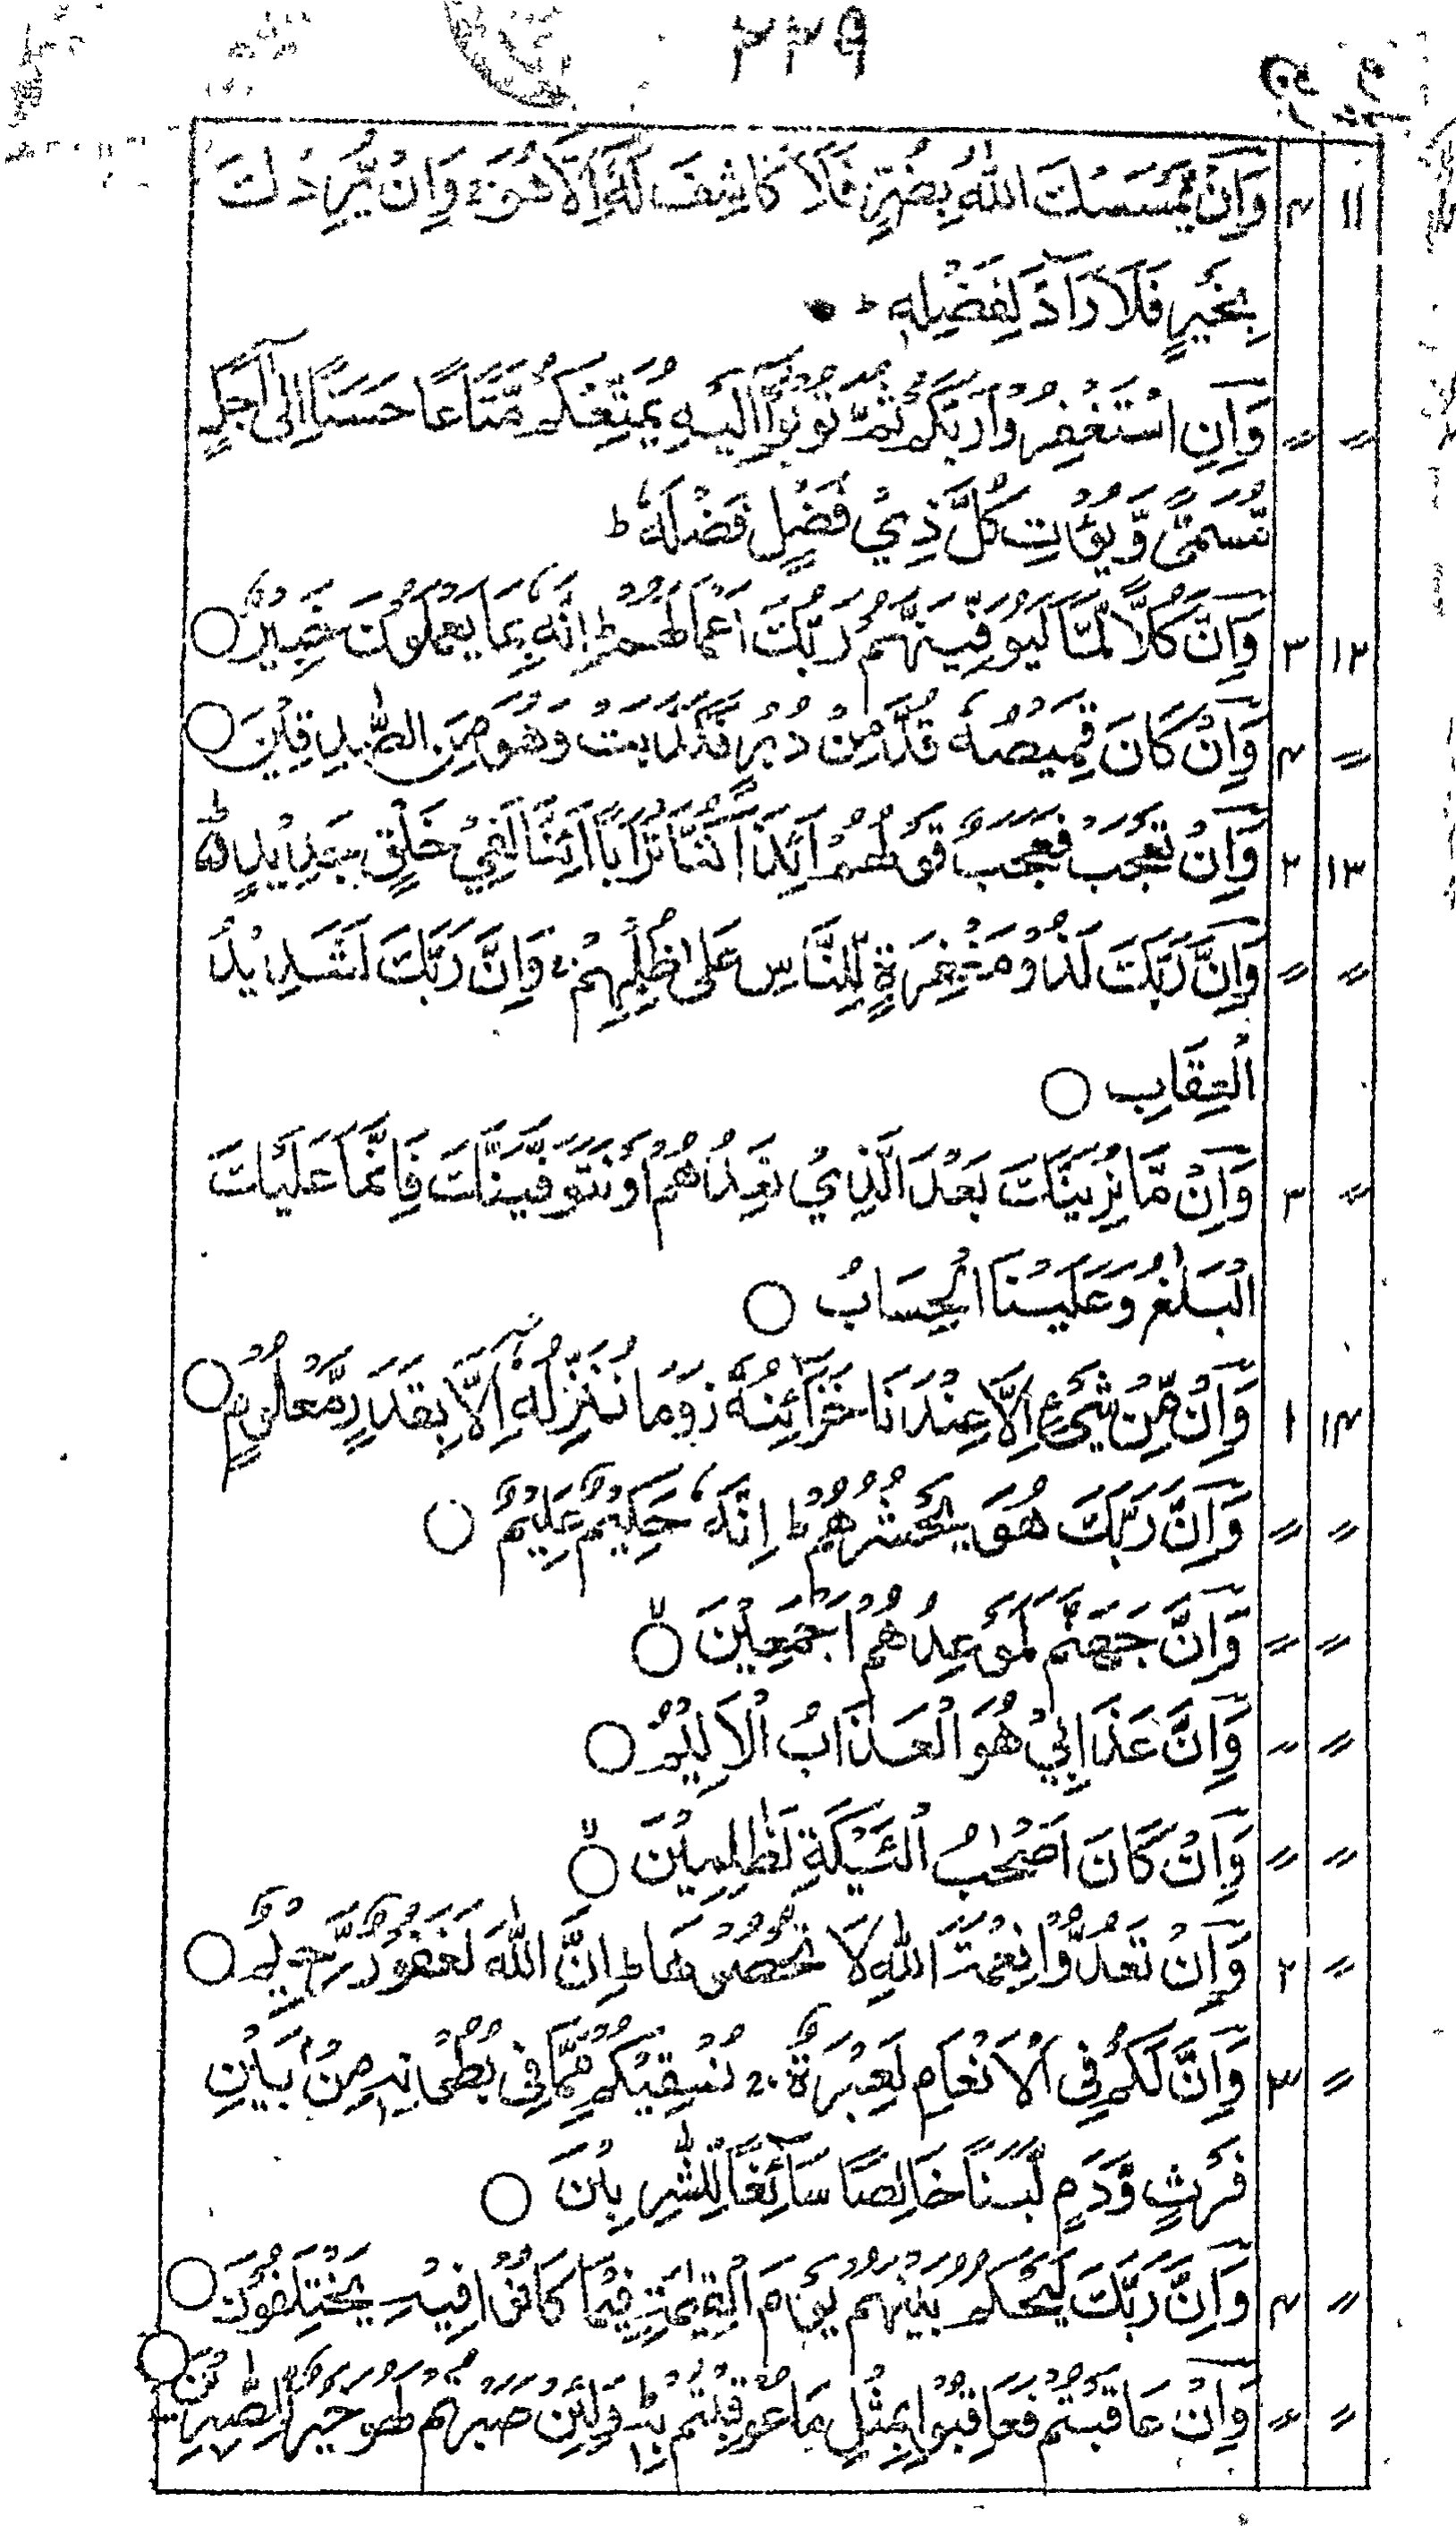 ۲۲۹
۱۱ ۴ وَاِنْ يَّمْسَسْكَ اللّٰهُ بِضُرٍّ فَلَا كَاشِفَ لَهٗٓ اِلَّا هُوَ ۚ وَاِنْ يُّرِدْكَ
بِخَيْرٍ فَلَا رَآدَّ لِفَضْلِهٖ ؕ
〃 〃 وَاَنِ اسْتَغْفِرُوْا رَبَّكُمْ ثُمَّ تُوْبُوْٓا اِلَيْهِ يُمَتِّعْكُمْ مَّتَاعًا حَسَنًا اِلٰٓى اَجَلٍ
مُّسَمًّى وَّيُؤْتِ كُلَّ ذِيْ فَضْلٍ فَضْلَهٗ ؕ
۱۲ ۳ وَاِنَّ كُلًّا لَّمَّا لَيُوَفِّيَنَّهُمْ رَبُّكَ اَعْمَالَهُمْ ؕ اِنَّهٗ بِمَا يَعْمَلُوْنَ خَبِيْرٌ ○
〃 ۴ وَاِنْ كَانَ قَمِيْصُهٗ قُدَّ مِنْ دُبُرٍ فَكَذَبَتْ وَهُوَ مِنَ الصّٰدِقِيْنَ ○
۱۳ ۲ وَاِنْ تَعْجَبْ فَعَجَبٌ قَوْلُهُمْ ءَاِذَا كُنَّا تُرَابًا ءَاِنَّا لَفِيْ خَلْقٍ جَدِيْدٍ ؕ۵
〃 〃 وَاِنَّ رَبَّكَ لَذُوْ مَغْفِرَةٍ لِّلنَّاسِ عَلٰى ظُلْمِهِمْ ۚ وَاِنَّ رَبَّكَ لَشَدِيْدُ
الْعِقَابِ ○
〃 ۳ وَاِنْ مَّا نُرِيَنَّكَ بَعْضَ الَّذِيْ نَعِدُهُمْ اَوْ نَتَوَفَّيَنَّكَ فَاِنَّمَا عَلَيْكَ
الْبَلٰغُ وَعَلَيْنَا الْحِسَابُ ○
۱۴ ۱ وَاِنْ مِّنْ شَيْءٍ اِلَّا عِنْدَنَا خَزَآئِنُهٗ ز وَمَا نُنَزِّلُهٗٓ اِلَّا بِقَدَرٍ مَّعْلُوْمٍ ○
〃 〃 وَاِنَّ رَبَّكَ هُوَ يَحْشُرُهُمْ ؕ اِنَّهٗ حَكِيْمٌ عَلِيْمٌ ○
〃 〃 وَاِنَّ جَهَنَّمَ لَمَوْعِدُهُمْ اَجْمَعِيْنَ ○
〃 〃 وَاَنَّ عَذَابِيْ هُوَ الْعَذَابُ الْاَلِيْمُ ○
〃 〃 وَاِنْ كَانَ اَصْحٰبُ الْاَيْكَةِ لَظٰلِمِيْنَ ○
〃 ۲ وَاِنْ تَعُدُّوْا نِعْمَةَ اللّٰهِ لَا تُحْصُوْهَا ؕ اِنَّ اللّٰهَ لَغَفُوْرٌ رَّحِيْمٌ ○
〃 ۳ وَاِنَّ لَكُمْ فِى الْاَنْعَامِ لَعِبْرَةً ۚ نُسْقِيْكُمْ مِّمَّا فِى بُطُوْنِهٖ مِنْۢ بَيْنِ
فَرْثٍ وَّدَمٍ لَّبَنًا خَالِصًا سَآئِغًا لِّلشّٰرِبِيْنَ ○
〃 ۴ وَاِنَّ رَبَّكَ لَيَحْكُمُ بَيْنَهُمْ يَوْمَ الْقِيٰمَةِ فِيْمَا كَانُوْا فِيْهِ يَخْتَلِفُوْنَ ○
〃 〃 وَاِنْ عَاقَبْتُمْ فَعَاقِبُوْا بِمِثْلِ مَا عُوْقِبْتُمْ بِهٖ ؕ وَلَئِنْ صَبَرْتُمْ لَهُوَ خَيْرٌ لِّلصّٰبِرِيْنَ ○